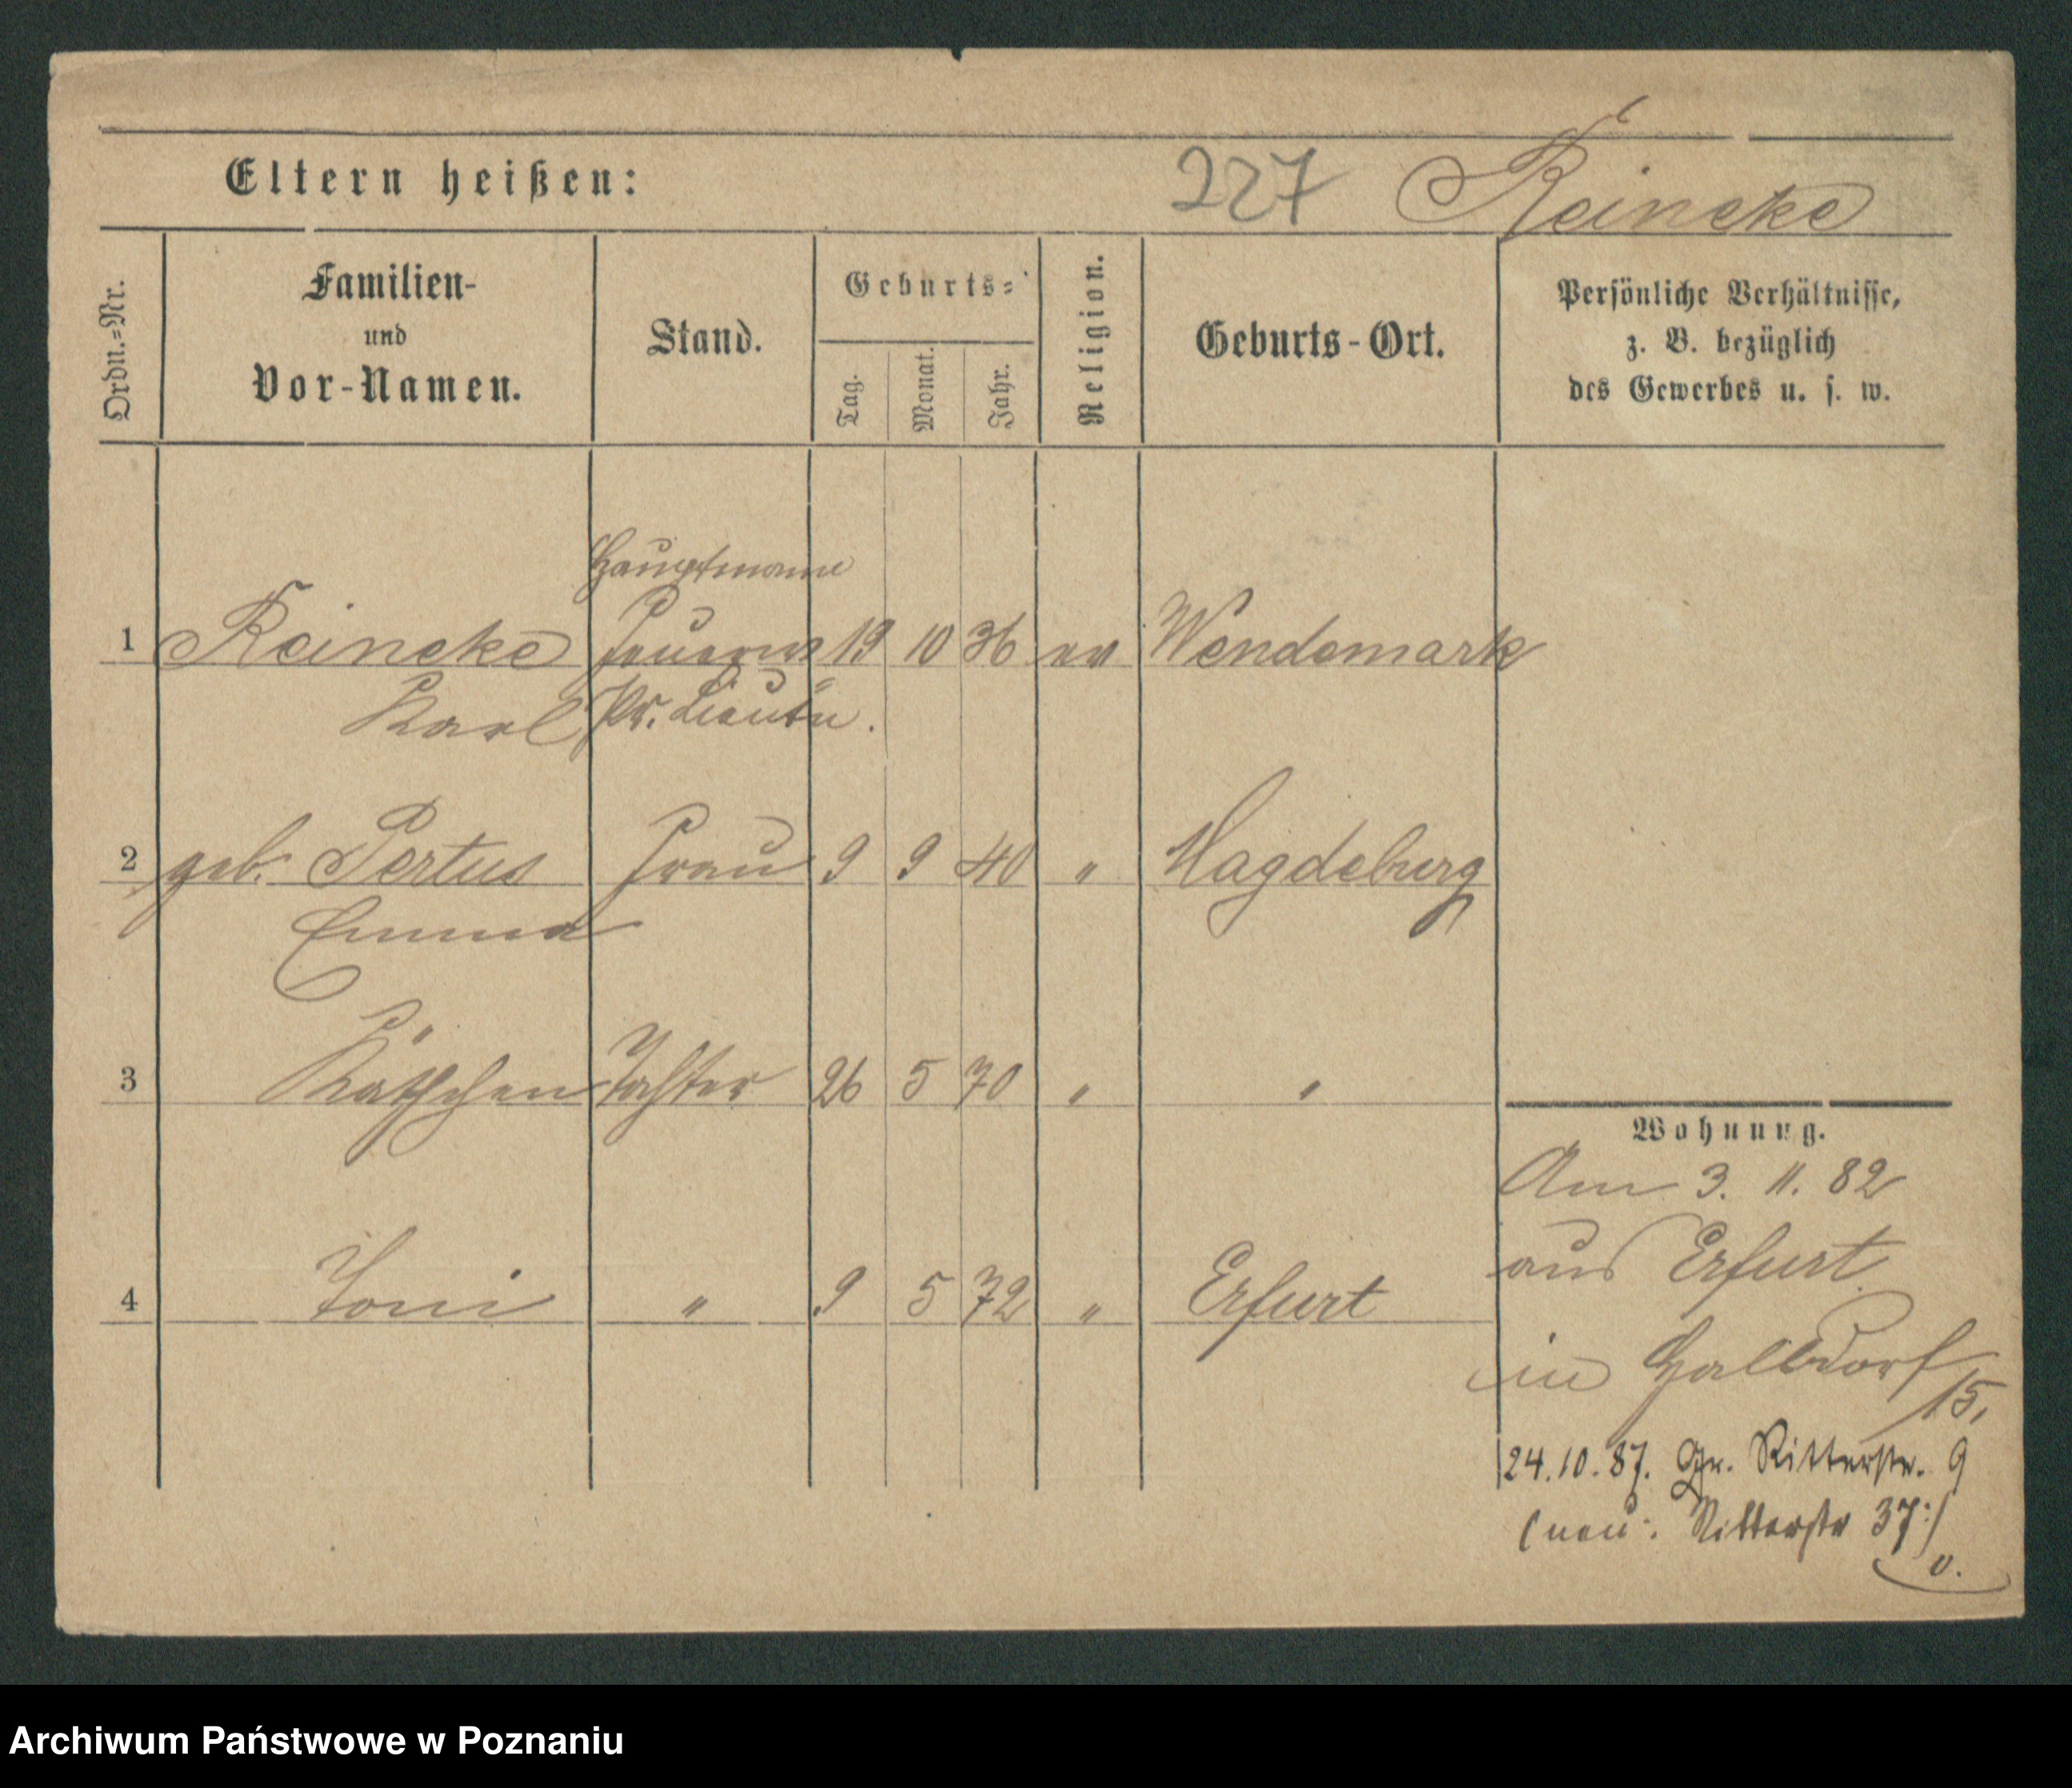 Eltern heißen: 227 Reineke
Ordn.=Nr. Familien- und Vor-Namen. Stand. Geburts= Tag. Monat. Jahr. Religion. Geburts-Ort. Persönliche Verhältnisse, z. B. bezüglich des Gewerbes u. s. w.
Hauptmann
1 Reineke 19 10 36 ev Wendemark
Karl Pr. Lieutn.
2 geb. Pertus Frau 9 9 40 " Magdeburg
Emma
3 Käthchen Tochter 26 5 70 " "
4 Toni " 9 5 72 " Erfurt
Wohnung.
Am 3. 11. 82
aus Erfurt
in Halldorf
15.
24.10.87. Gr. Ritterstr. 9
(neu: Ritterstr 37:)
v.
Archiwum Państwowe w Poznaniu